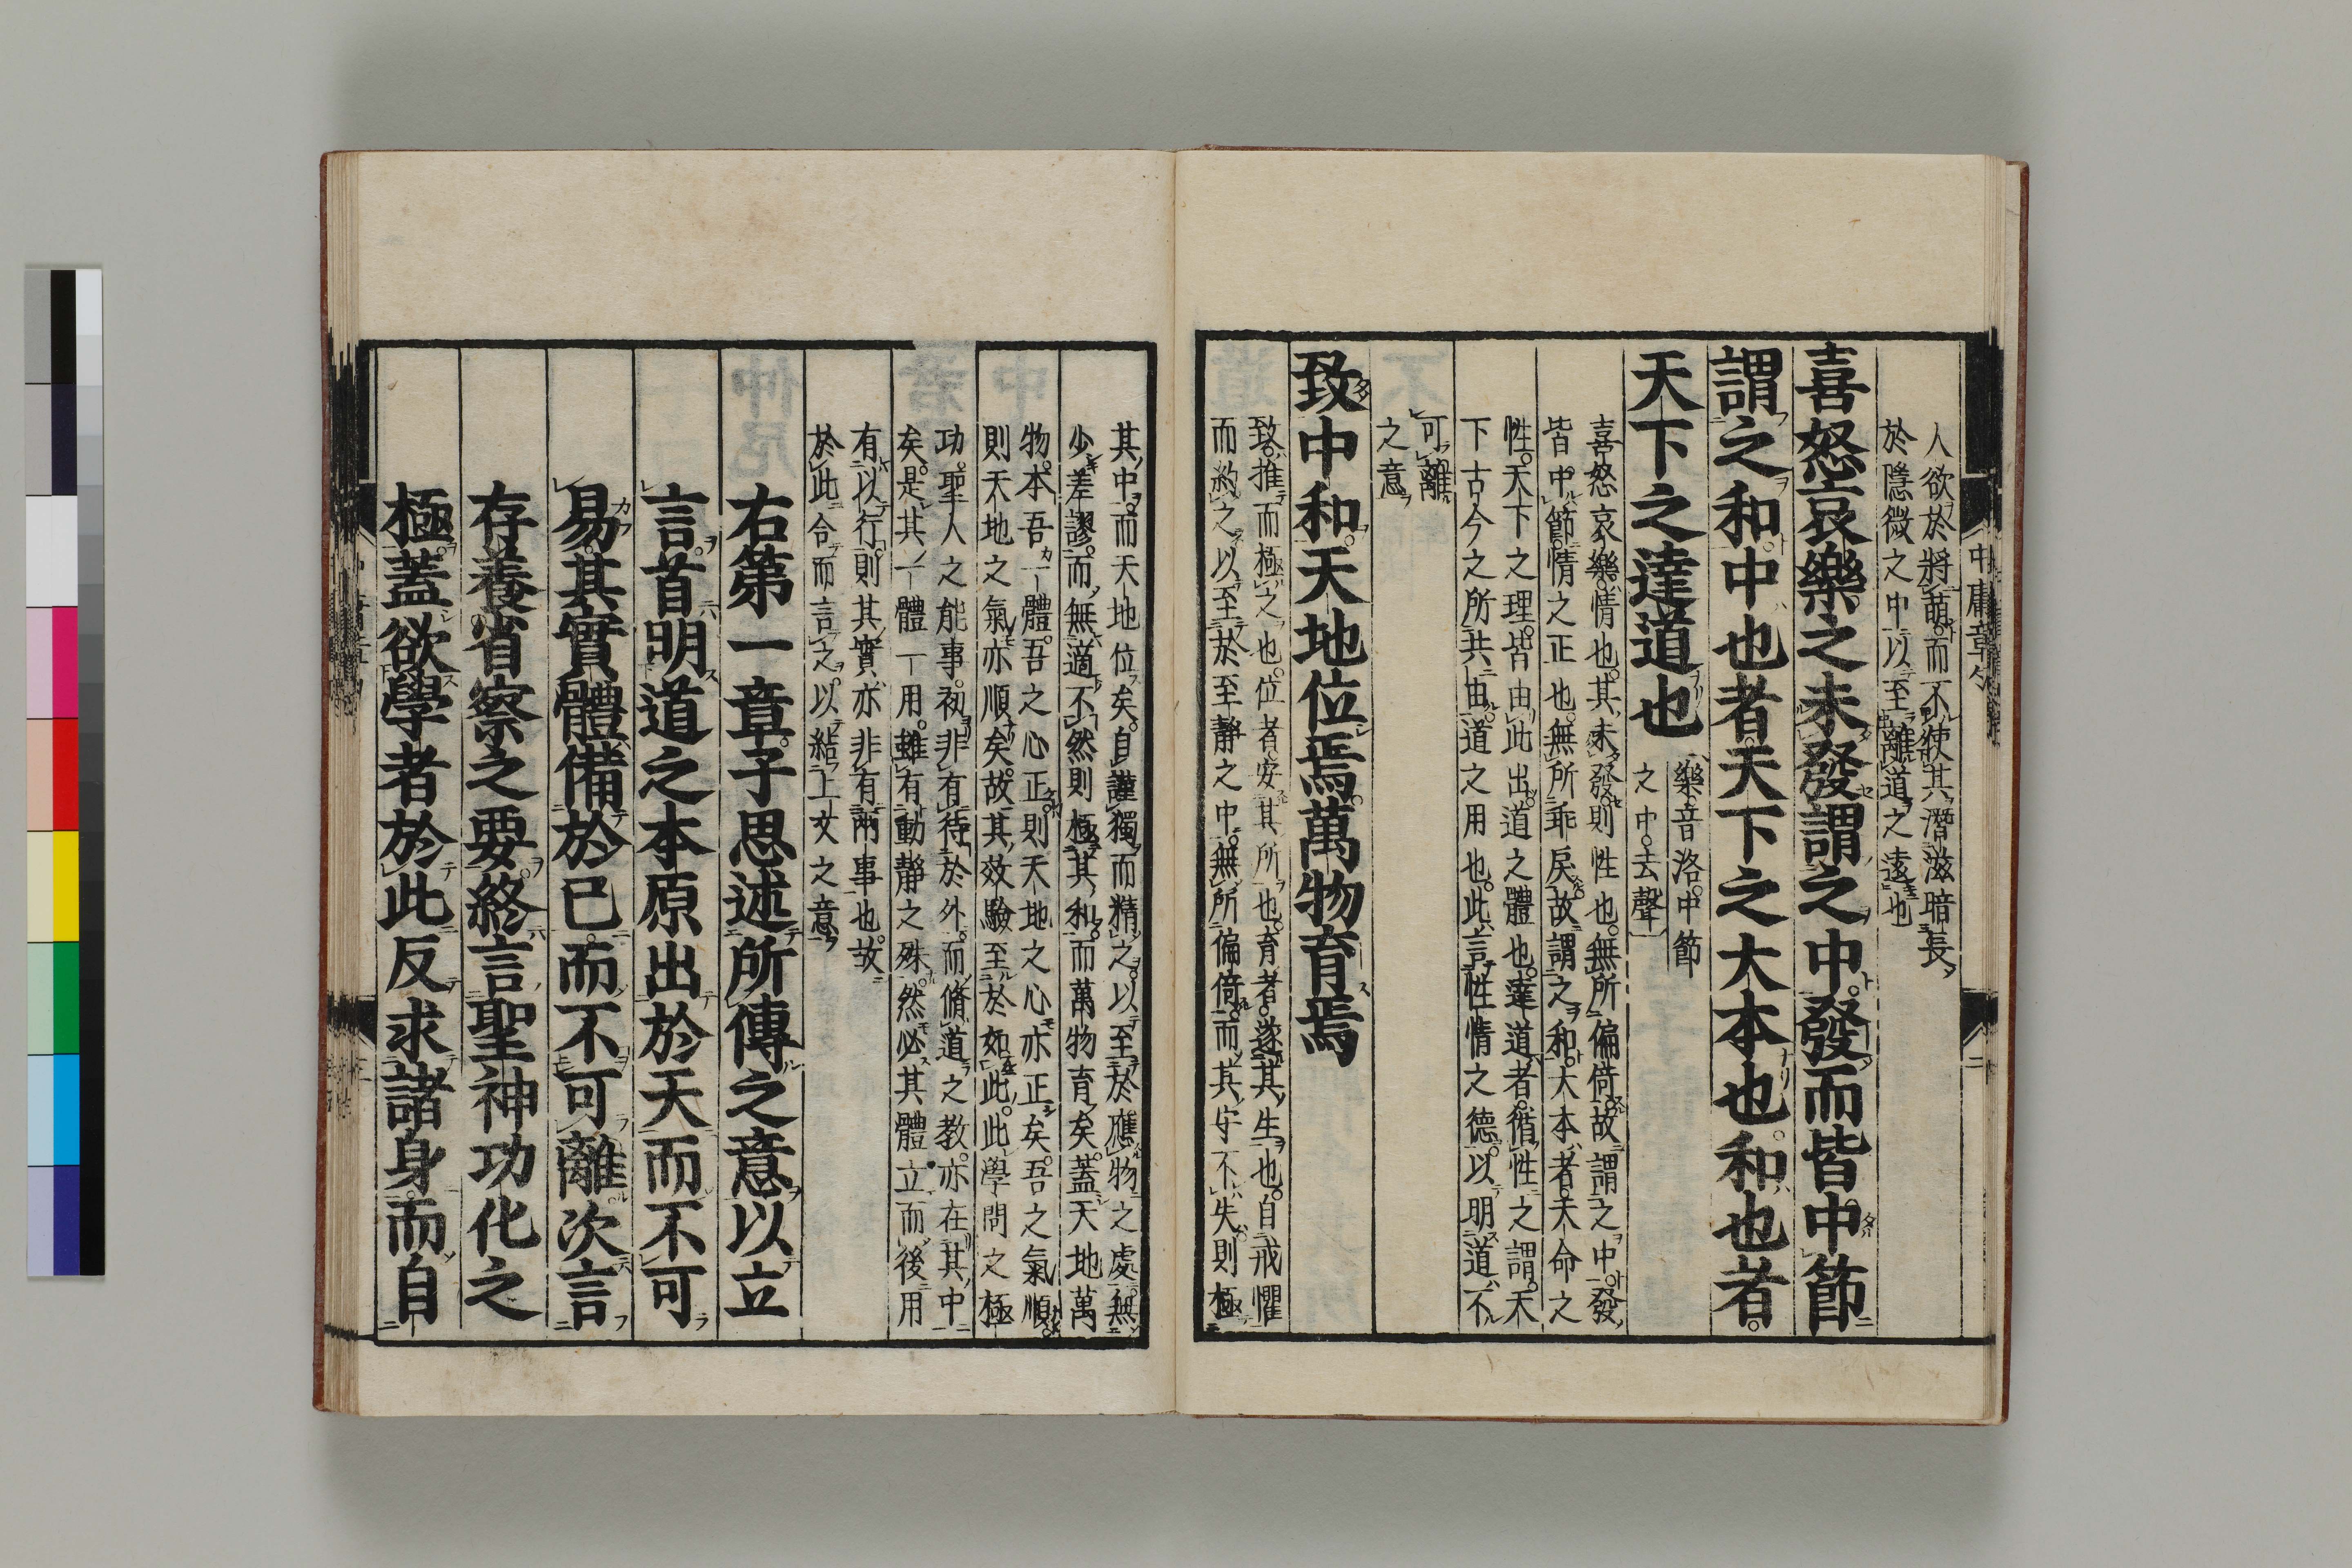 中庸章句
二
人欲於將萌而不使其潛滋暗長
於隱微之中以至離道之遠也
喜怒哀樂之未發謂之中發而皆中節
謂之和中也者天下之大本也和也者
天下之達道也
樂音洛中節
之中去聲
喜怒哀樂情也其未發則性也無所偏倚故謂之中發
皆中節情之正也無所乖戾故謂之和大本者天命之
性天下之理皆由此出道之體也達道者循性之謂天
下古今之所共由道之用也此言性情之德以明道不
可離
之意
致中和天地位焉萬物育焉
致推而極之也位者安其所也育者遂其生也自戒懼
而約之以至於至靜之中無所偏倚而其守不失則極
其中而天地位矣自謹獨而精之以至於應物之處無
少差謬而無適不然則極其和而萬物育矣蓋天地萬
物本吾一體吾之心正則天地之心亦正矣吾之氣順
則天地之氣亦順矣故其效驗至於如此此學問之極
功聖人之能事初非有待於外而脩道之教亦在其中
矣是其一體一用雖有動靜之殊然必其體立而後用
有以行則其實亦非有兩事也故
於此合而言之以結上文之意
右第一章子思述所傳之意以立
言首明道之本原出於天而不可
易其實體備於己而不可離次言
存養省察之要終言聖神功化之
極蓋欲學者於此反求諸身而自